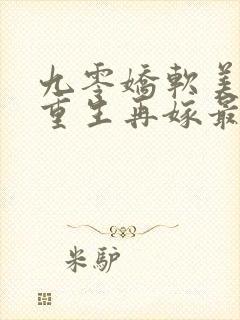 九零嬌軟美
重生再嫁最
米驴